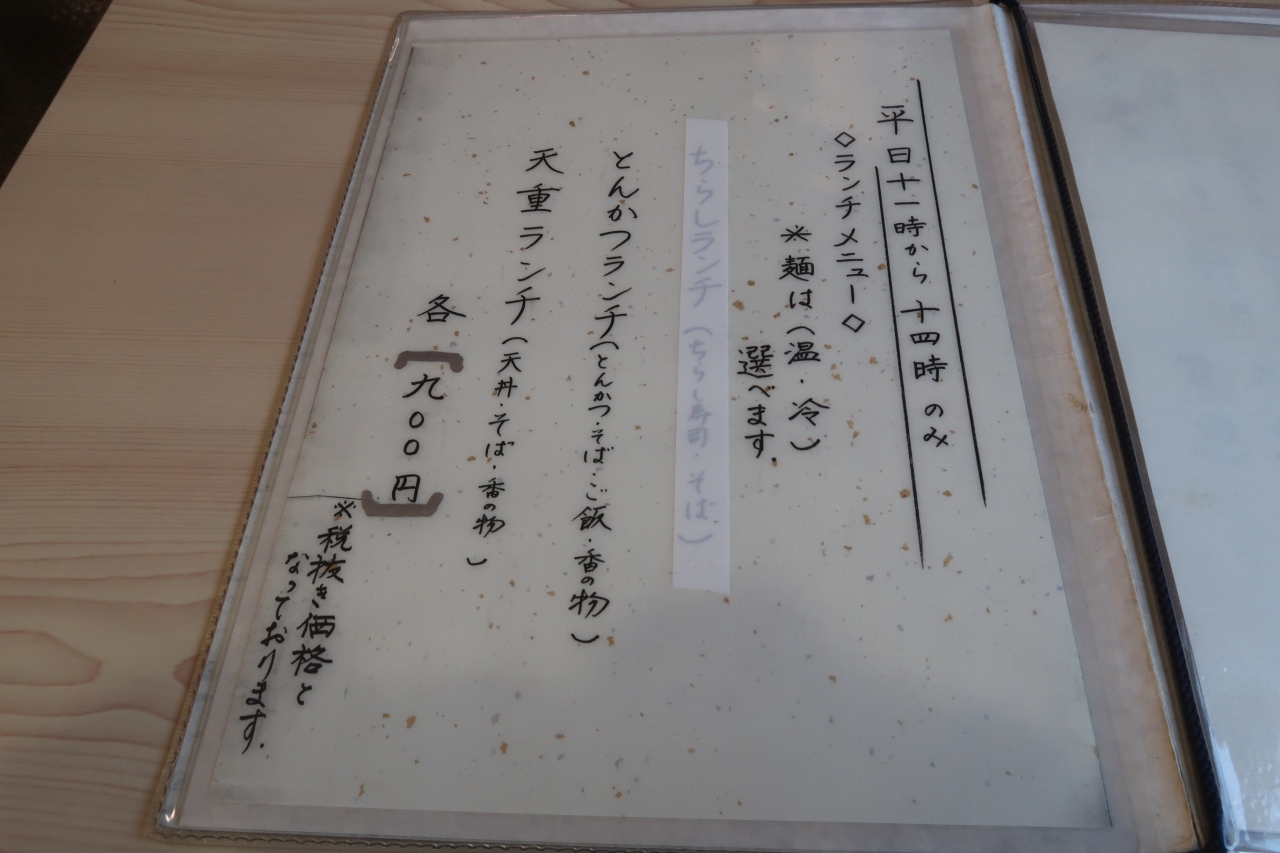 平日十一時から十四時のみ
◇ランチメニュー◇
※麺は(温・冷)
選べます.
ちらしランチ(ちらし寿司・そば)
とんかつランチ(とんかつ・そば・ご飯・香の物)
天重ランチ(天丼・そば・香の物)
各【九〇〇円】
※税抜き価格と
なっております.